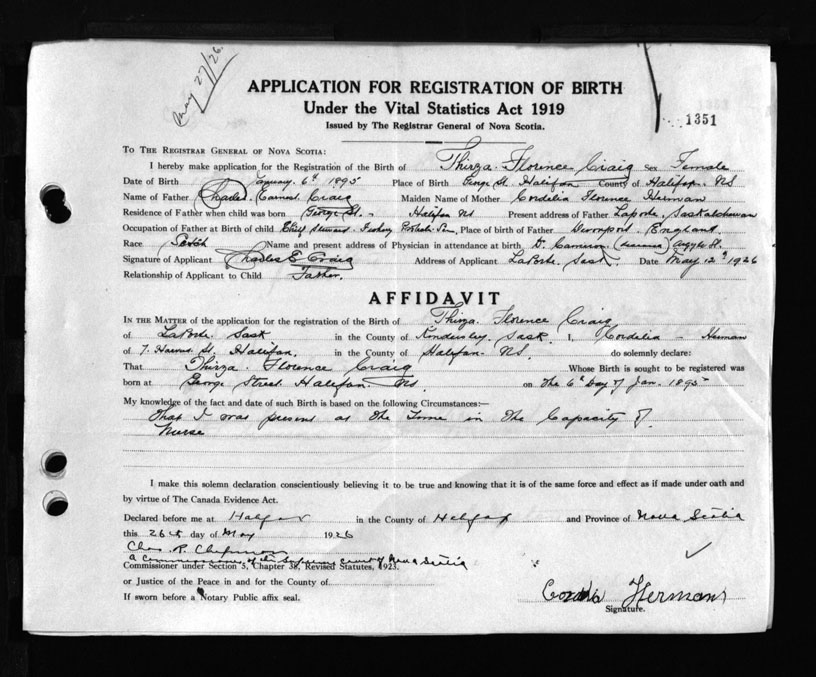 May 27/26.
APPLICATION FOR REGISTRATION OF BIRTH
Under the Vital Statistics Act 1919
Issued by The Registrar General of Nova Scotia.
1351
TO THE REGISTRAR GENERAL OF NOVA SCOTIA:
I hereby make application for the Registration of the Birth of Thirza Florence Craig Sex Female
Date of Birth January 6th 1895 Place of Birth George St. Halifax County of Halifax NS
Name of Father Charles Earnest Craig Maiden Name of Mother Cordelia Florence Herman
Residence of Father when child was born George St. - Halifax NS Present address of Father Laporte, Saskatchewan
Occupation of Father at Birth of child Chief Steward Place of birth of Father Devonport, England
Race Scotch Name and present address of Physician in attendance at birth Dr. Cameron (deceased) Argyle St.
Signature of Applicant Charles E Craig Address of Applicant LaPorte Sask. Date May 12th 1926
Relationship of Applicant to Child Father.
AFFIDAVIT
IN THE MATTER of the application for the registration of the Birth of Thirza Florence Craig
of LaPorte Sask in the County of Kindersley Sask. I, Cordelia - Herman
of 7. St. Halifax. in the County of Halifax NS. do solemnly declare:
That Thirza Florence Craig Whose Birth is sought to be registered was
born at George Street Halifax NS. on the 6th Day of Jan. 1895
My knowledge of the fact and date of such Birth is based on the following Circumstances:—
That I was present at the Time in the Capacity of
Nurse
I make this solemn declaration conscientiously believing it to be true and knowing that it is of the same force and effect as if made under oath and
by virtue of The Canada Evidence Act.
Declared before me at Halifax in the County of Halifax and Province of Nova Scotia
this 26th day of May 1926
Chas. R. Chipman
a Commissioner of the Supreme Court of Nova Scotia
Commissioner under Section 5, Chapter 38, Revised Statutes, 1923.
or Justice of the Peace in and for the County of
If sworn before a Notary Public affix seal.
Cordelia Herman
Signature.